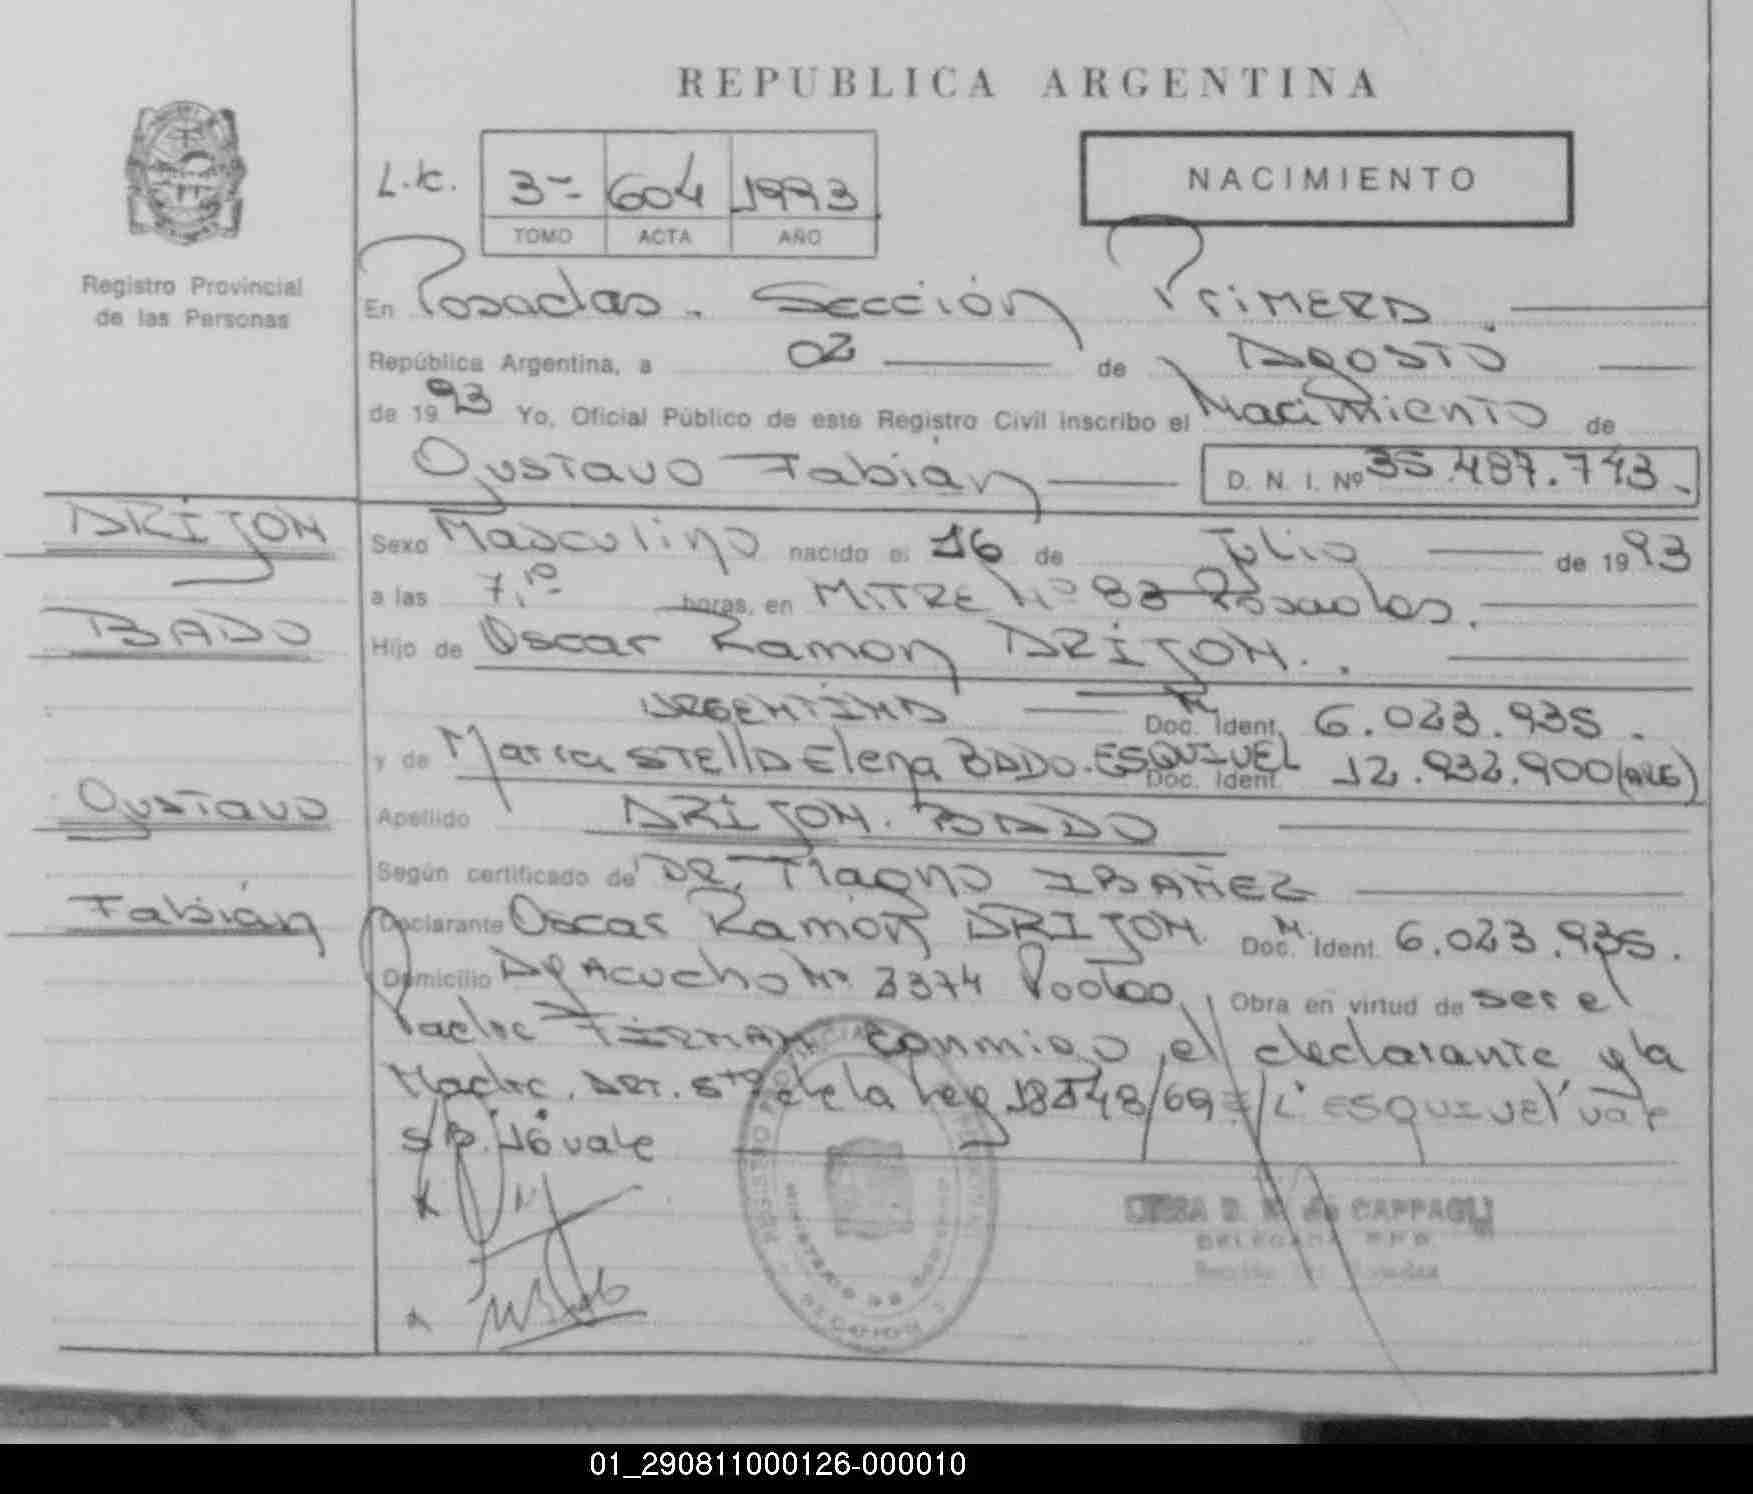 REPUBLICA ARGENTINA
NACIMIENTO
L.K. 3- 604 1993
TOMO ACTA AÑO
Registro Provincial
de las Personas
En Posadas. Sección Primera.
República Argentina, a 02 de Agosto
de 1993 Yo, Oficial Público de este Registro Civil inscribo el Nacimiento de
Gustavo Fabián D. N. I. Nº 35.487.743.
ARIJON
BADO
Gustavo
Fabián
Sexo Masculino nacido el 16 de Julio de 1993
a las 7,10 horas, en MITRE Nº 83 Posadas.
Hijo de Oscar Ramon ARIJON.
ARGENTINA M Doc. Ident. 6.023.935.
y de Maria STELLA Elena BADO. ESQUIVEL Doc. Ident. 12.932.900 (ARG)
Apellido ARIJON. BADO
Según certificado de DR. Magno IBAÑEZ
Declarante Oscar Ramón ARIJON. M Doc. Ident. 6.023.935.
Domicilio Ayacucho Nº 3374 Obra en virtud de ser el
Padre FIRMAN conmigo, el declarante y la
Madre. ART. 5to de la Ley 18248/69 E/L "ESQUIVEL" vale
S/R. 16 vale
DE CAPPAGLI
DELEGADA R.P.P.
01_290811000126-000010